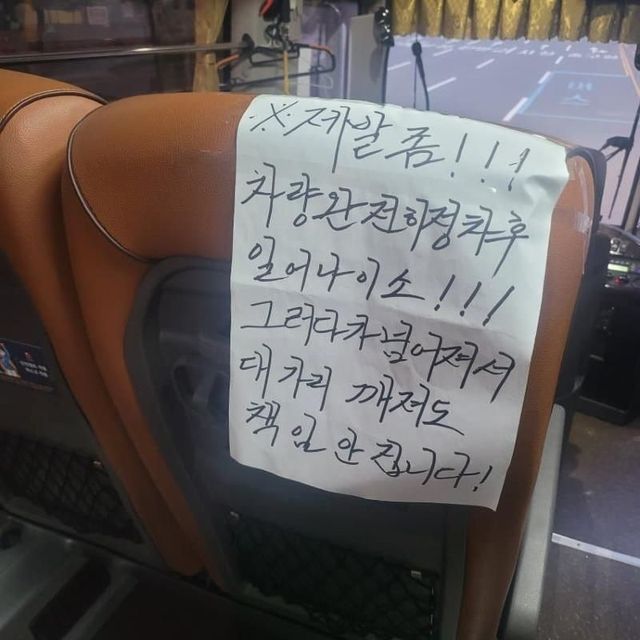 ※제발 좀!!!
차량완전히정차후
일어나이소!!!
그러다가넘어져서
대가리 깨져도
책임 안집니다!